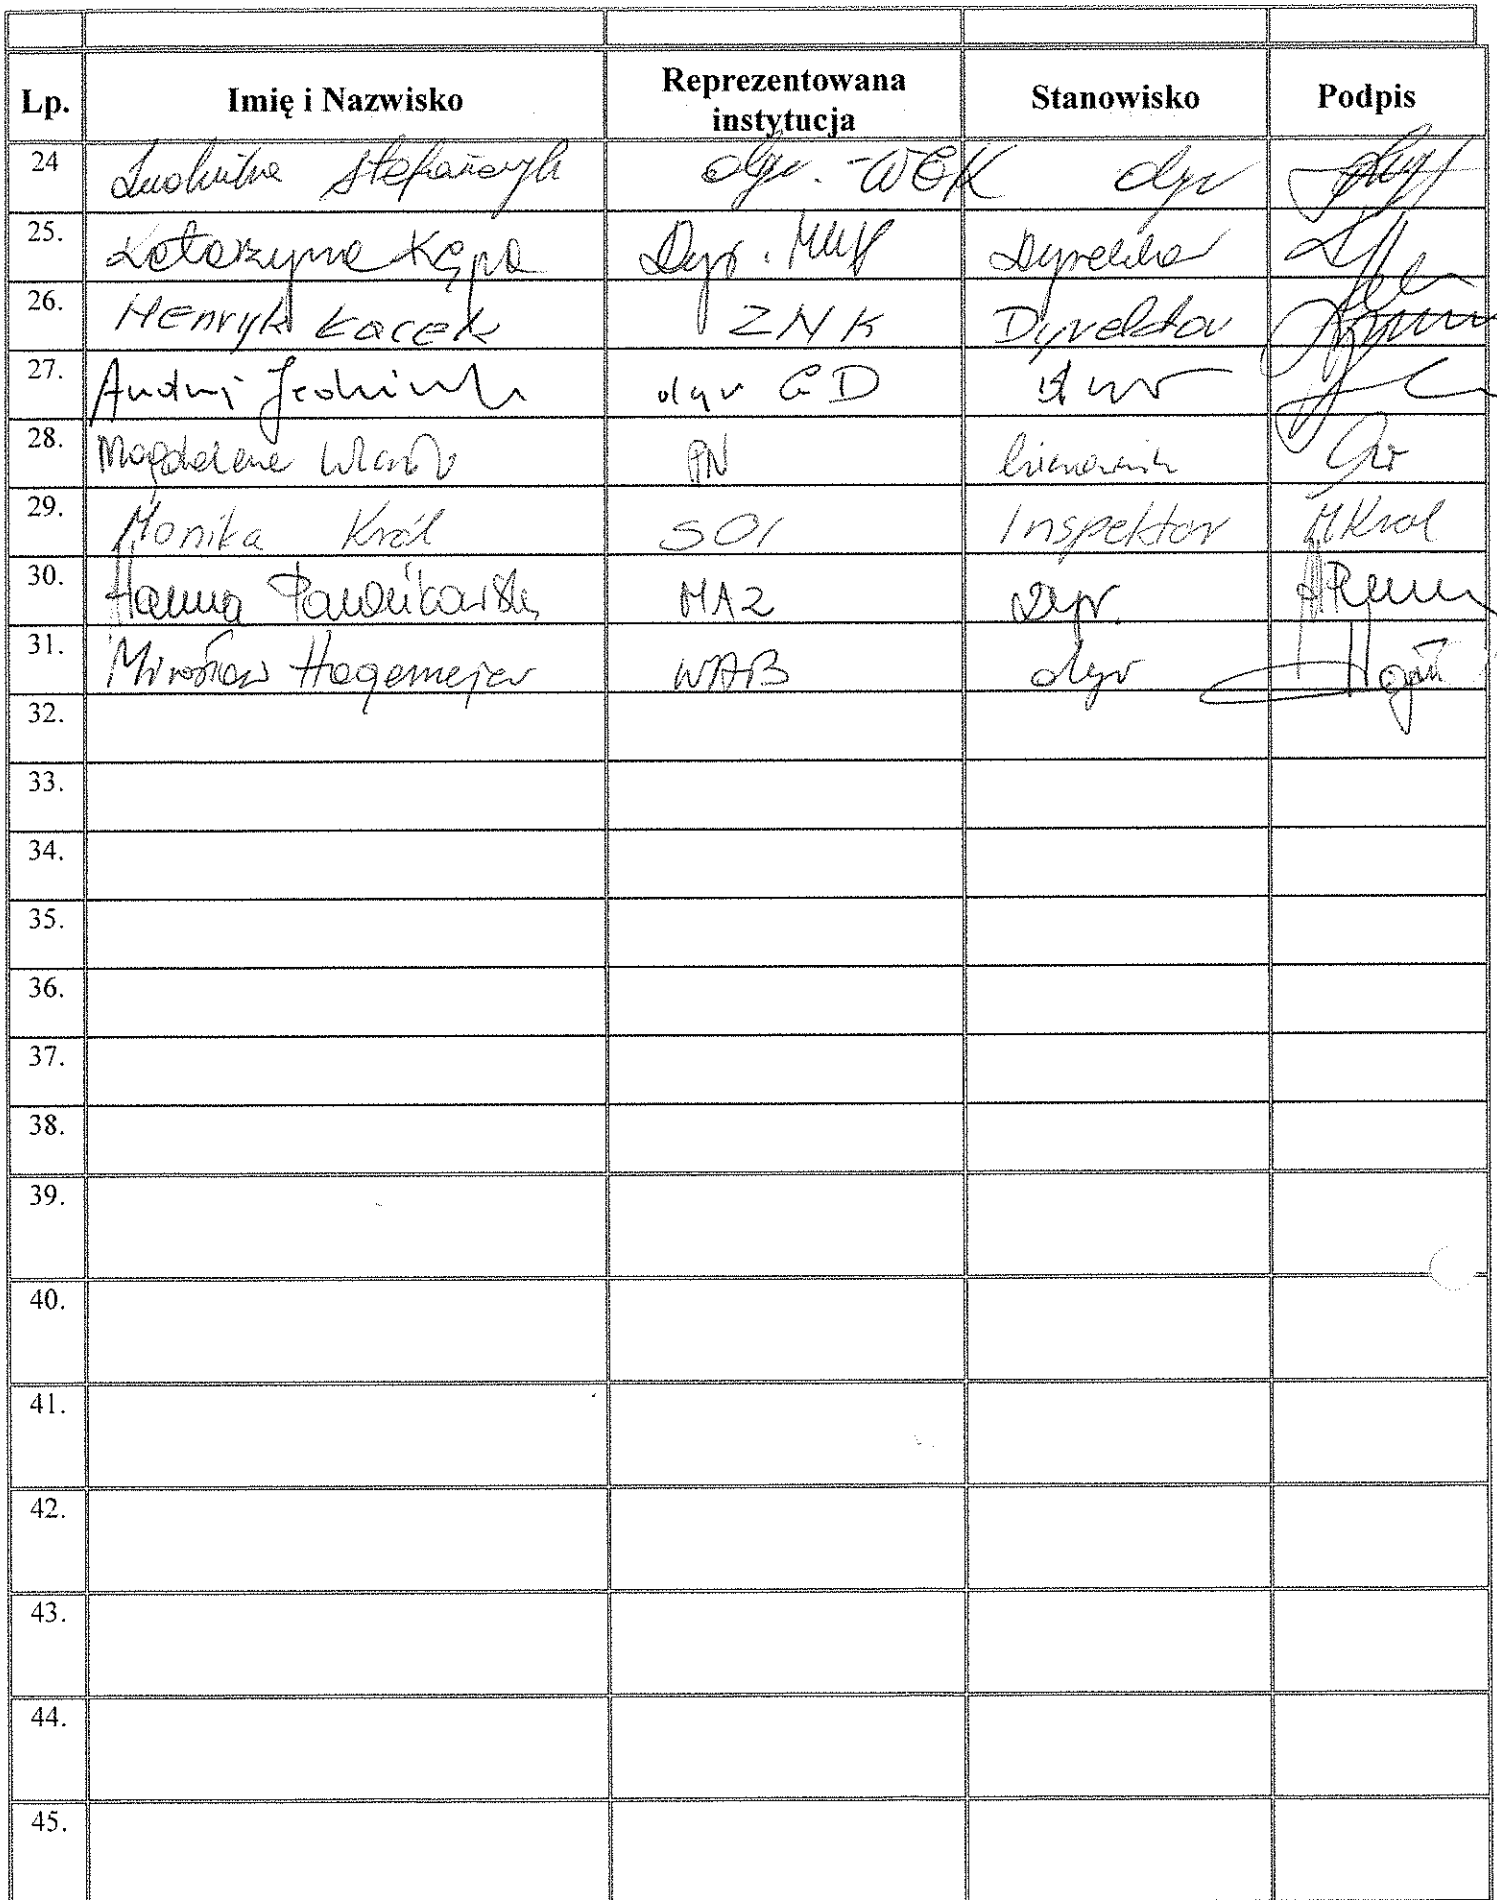 Lp. Imię i Nazwisko Reprezentowana instytucja Stanowisko Podpis
24 Ludmiła Stefańczyk dyr. - WGK dyr
25. Katarzyna Kępa Dyr. Dyrektor
26. Henryk Łacek ZNK Dyrektor
27. Andrzej dyr GD
28. Magdalena PN kierownik
29. Monika Król SOI Inspektor MKrol
30. Hanna MAZ Dyr.
31. Mirosław Hagemejer WAB dyr
32.
33.
34.
35.
36.
37.
38.
39.
40.
41.
42.
43.
44.
45.